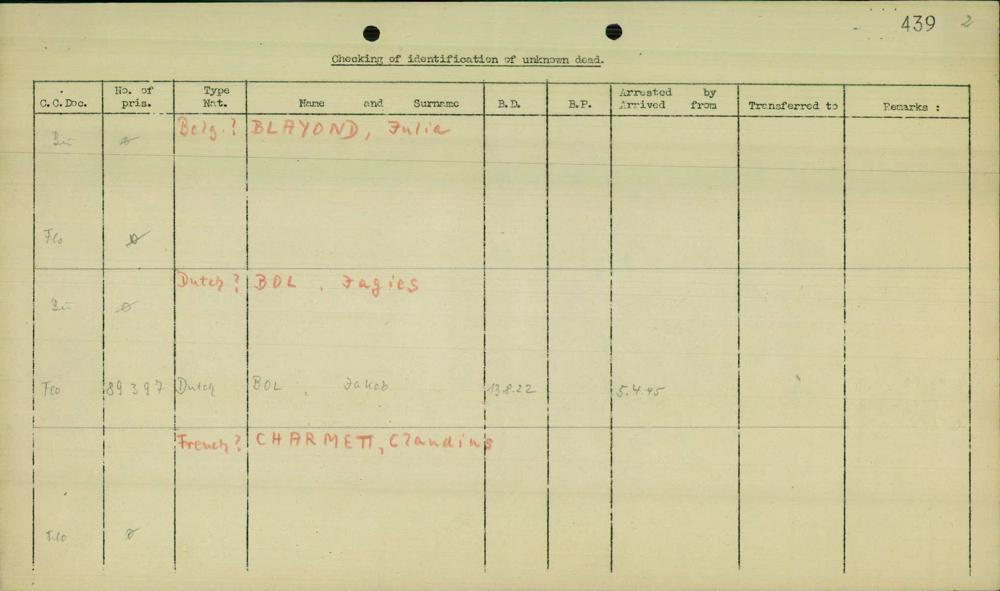 439 2
Checking of identification of unknown dead.
C.C.Doc. No. of pris. Type Nat. Name and Surname B.D. B.P. Arrested by Arrived from Transferred to Remarks :
Belg.? BLAYOND, Julia
Bu ø
Flo ø
Dutch? BOL , Jagies
Bu ø
Flo 89397 Dutch BOL , Jakob 13.8.22 5.4.45
French? CHARMETT, Claudius
Flo ø